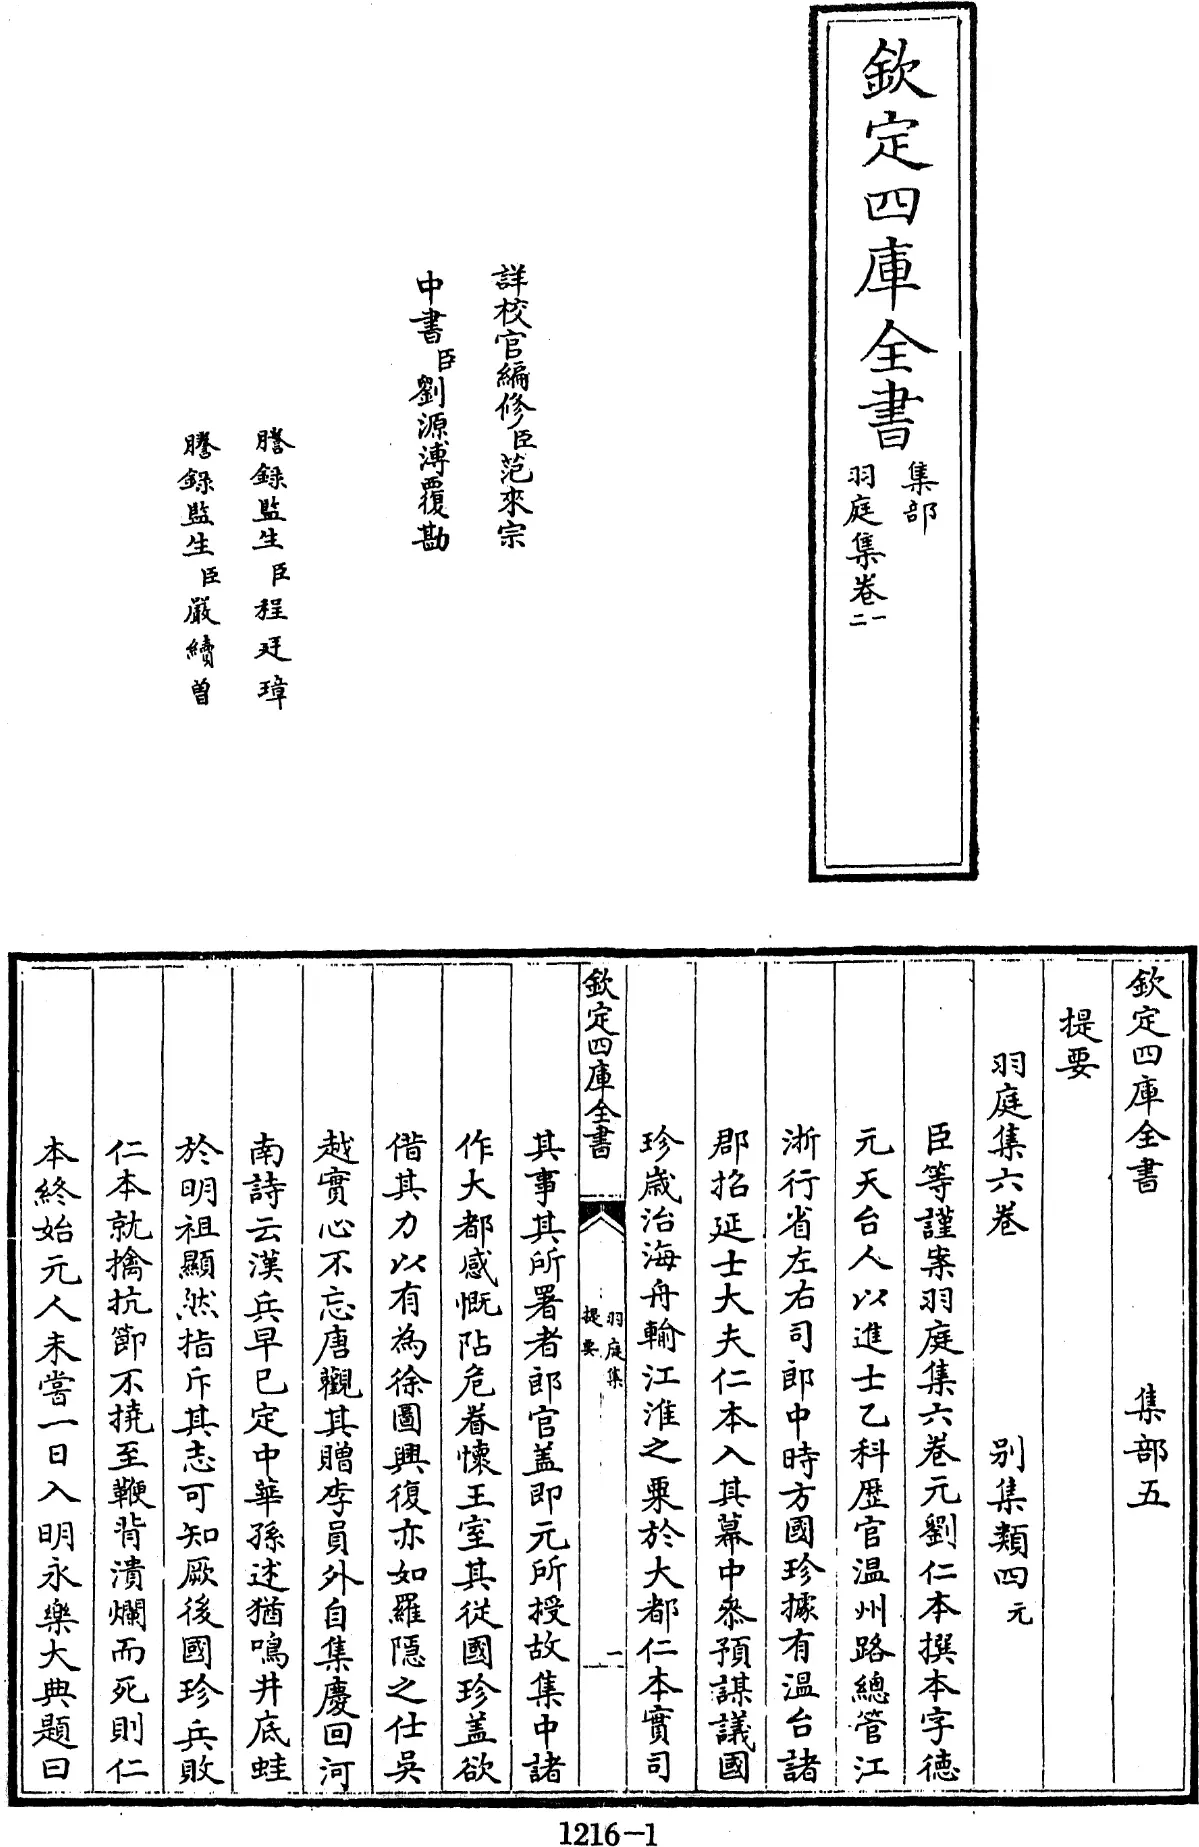 欽定四庫全書
集部
羽庭集卷一
二
詳校官編修臣范來宗
中書臣劉源溥覆勘
謄錄監生臣程廷瑋
謄錄監生臣嚴續曾
欽定四庫全書 集部五
提要
羽庭集六卷 別集類四元
臣等謹案羽庭集六卷元劉仁本撰本字德
元天台人以進士乙科歴官温州路總管江
浙行省左右司郎中時方國珍據有温台諸
郡招延士大夫仁本入其幕中叅預謀議國
珍嵗治海舟輸江淮之粟於大都仁本實司
欽定四庫全書 羽庭集
提要 一
其事其所署者郎官盖即元所授故集中諸
作大都感慨阽危眷懐王室其從國珍盖欲
借其力以有為徐圖興復亦如羅隠之仕吳
越實心不忘唐觀其贈李員外自集慶回河
南詩云漢兵早已定中華孫述猶鳴井底蛙
於明祖顯然指斥其志可知厥後國珍兵敗
仁本就擒抗節不撓至鞭背潰爛而死則仁
本終始元人未嘗一日入明永樂大典題曰
1216-1